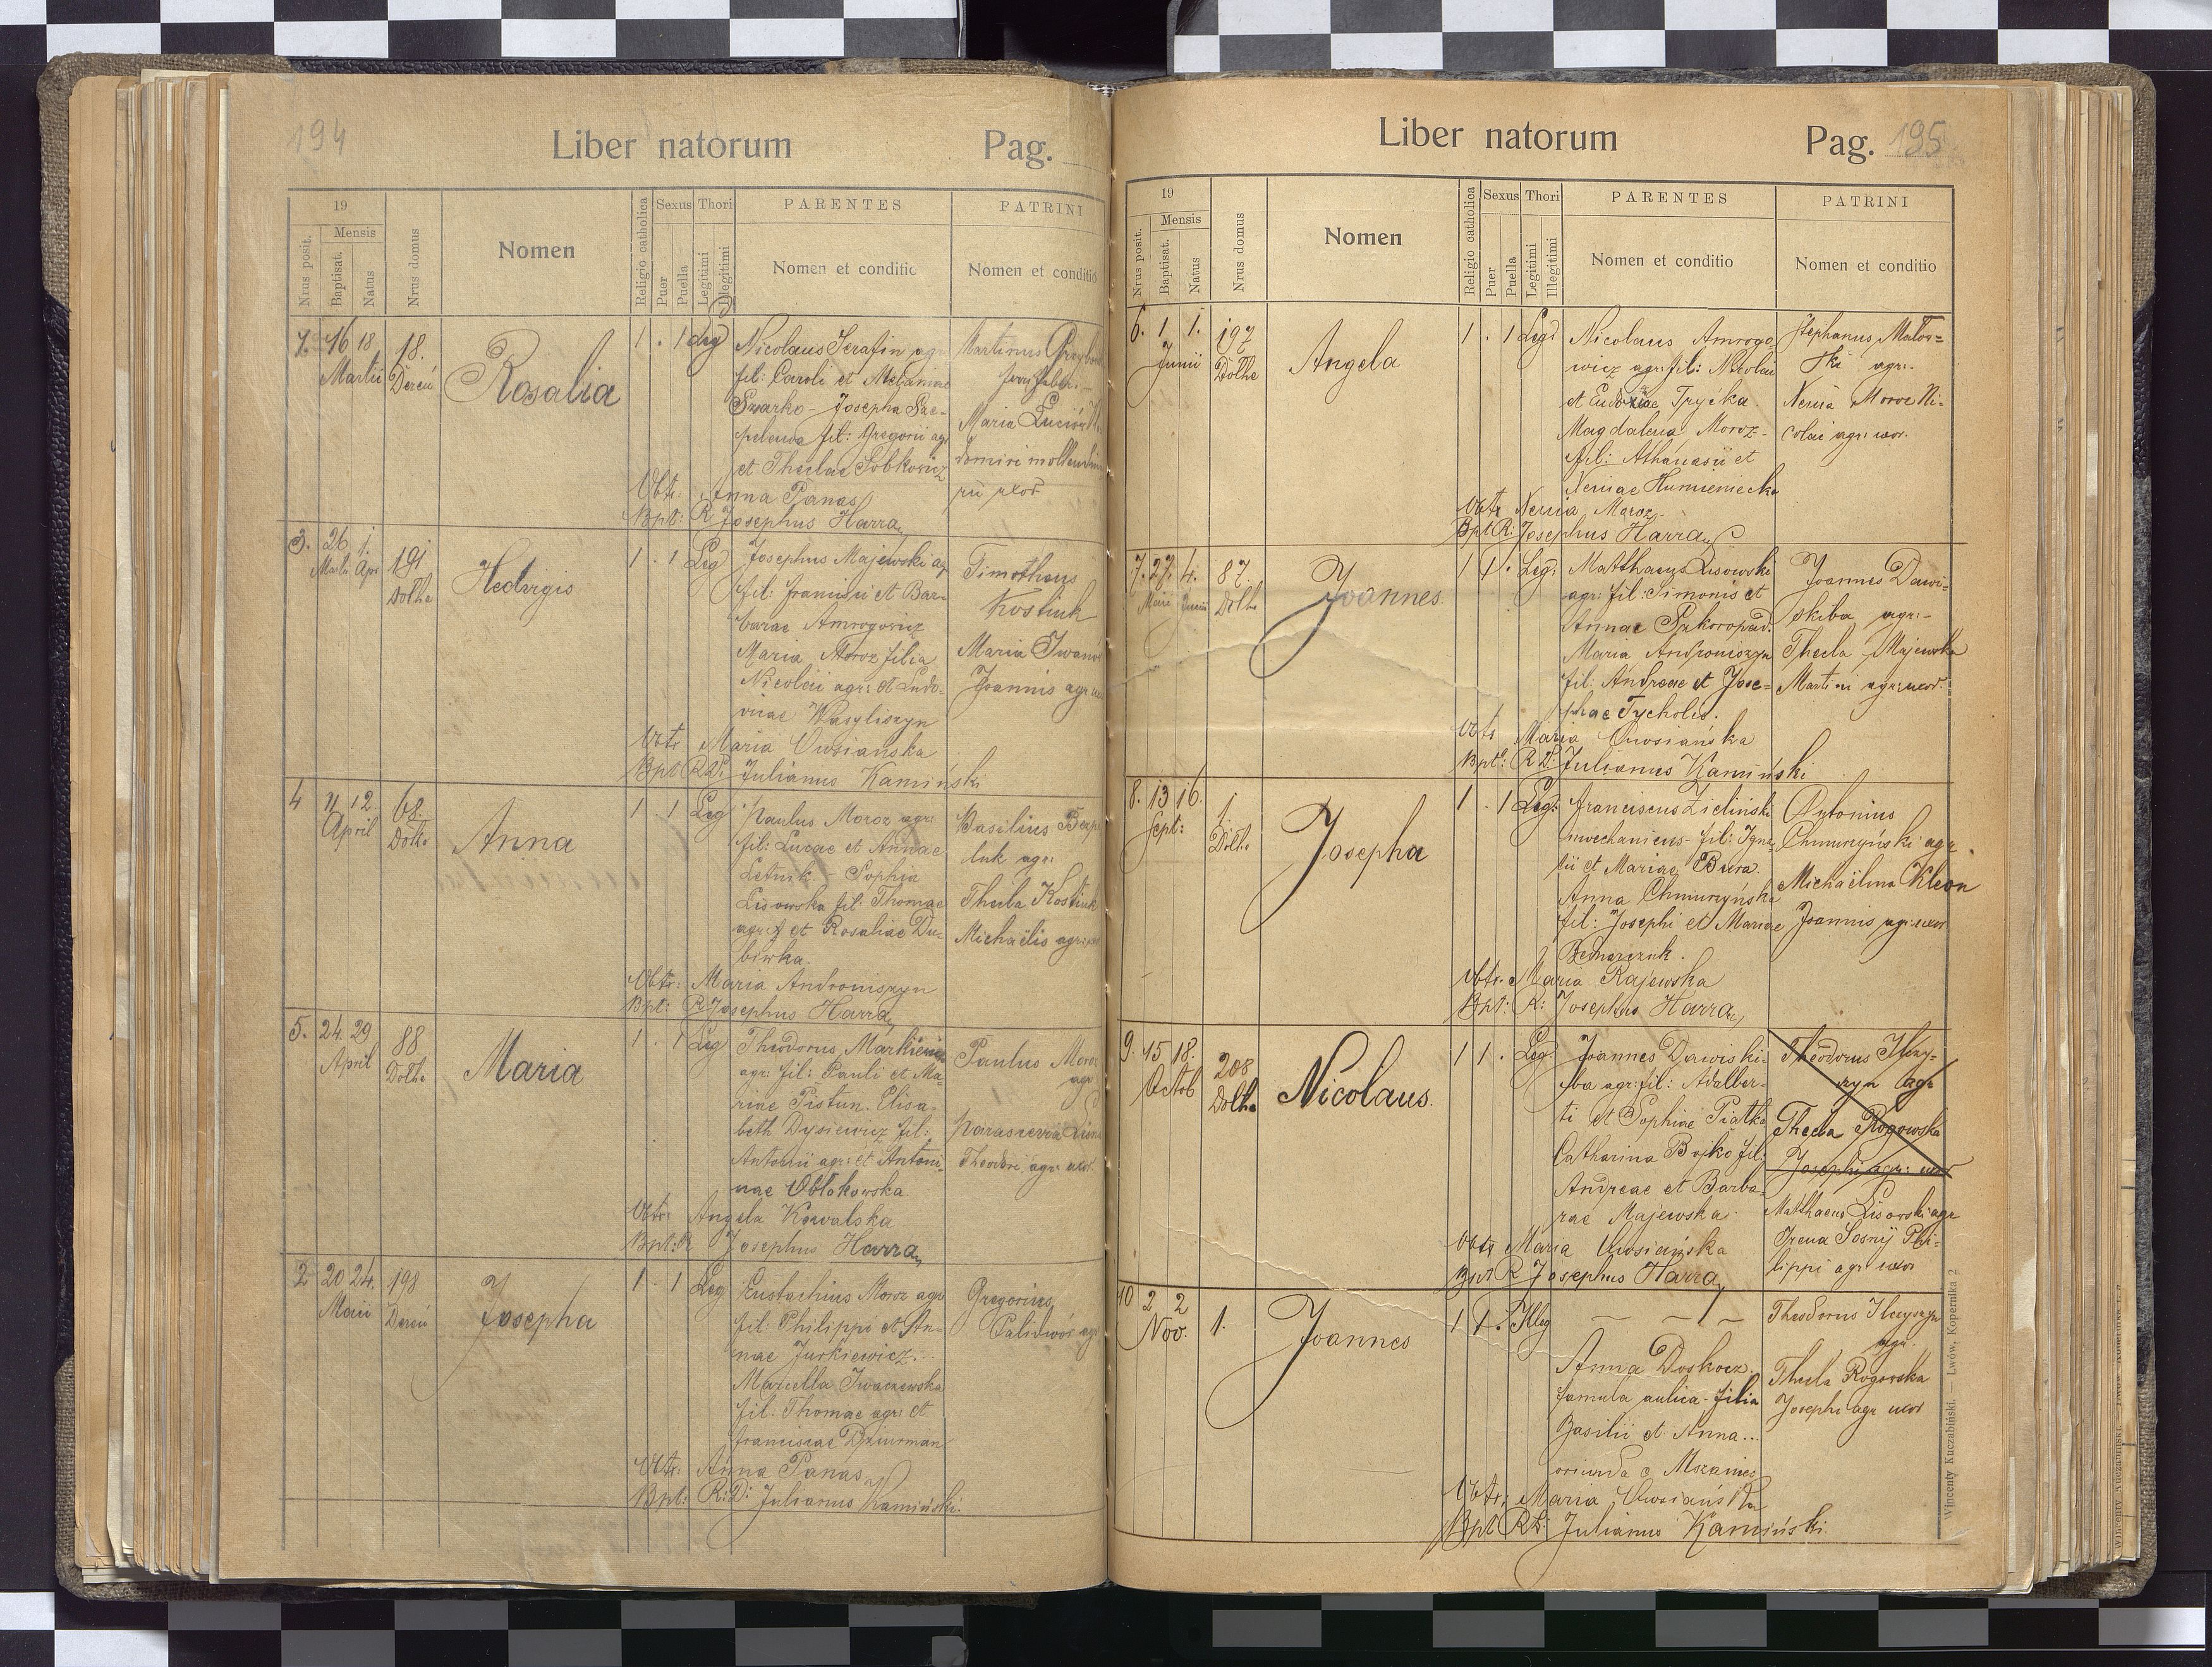 194
Liber natorum
Pag.
19
Mensis
Nrus posit.
Baptisat.
Natus
Nrus domus
Nomen
Religio catholica
Sexus
Puer
Puella
Thori
Legitimi
Illegitimi
PARENTES
Nomen et conditio
PATRINI
Nomen et conditio
1. 16 18
Martii
18.
Dereń
Rosalia
1 . 1 Leg
Nicolaus Serafin agr
fil: Caroli et Melaniae
Szarko - Josepha
fil: Gregorii agr
et Theclae Sobkowicz
Obtr: Anna Panas
Bpt: R Josephus Harra
Martinus
Maria
uxor
3. 26 1.
Martii Apr
191
Dolhe
Hedvigis
1 . 1 Leg
Josephus Majewski agr
fil: Joannis et Bar-
barae Amrogowicz
Maria Moroz filia
Nicolai agr: et Ludo-
vicae Wasyliszyn
Obtr Maria Owsianska
Bpt R.D: Julianus Kamiński
Timotheus
Kostiuk
Maria Iwano
Joannis agr ux
4 11 12
April
68
Dolhe
Anna
1 . 1 Leg
Paulus Moroz agr:
fil: Lucae et Annae
Letnik - Sophia
Lisowska fil: Thomae
agr: et Rosaliae Du-
biwka.
Obtr: Maria Androniszyn
Bpt: R Josephus Harra
Basilius
luk agr:
Thecla Kostiuk
Michaëlis agr:
5. 24 29
April
88
Dolhe
Maria
1 . 1 Leg
Theodorus Markiewicz
agr: fil: Pauli et Ma-
riae Pistun. Elisa-
beth Dysiewicz fil:
Antonii agr: et Antoni-
nae Obłakowska
Obtr: Angela Kowalska
Bpt: R Josephus Harra
Paulus Moroz
agr
Parascevia
Theodori agr: uxor
2 20 24.
Maii
198
Dereń
Josepha
1 . 1 Leg
Eustachius Moroz agr
fil: Philippi et An-
nae Jurkiewicz.
Marcella Iwaczewska
fil: Thomae agr: et
Franciscae Dziurman
Obtr: Anna Panas
Bpt: R:D: Julianus Kamiński
Gregorius
Palidwór agr
Liber natorum
Pag. 195
19
Mensis
Nrus posit.
Baptisat.
Natus
Nrus domus
Nomen
Religio catholica
Sexus
Puer
Puella
Thori
Legitimi
Illegitimi
PARENTES
Nomen et conditio
PATRINI
Nomen et conditio
6. 1. 1.
Junii
197
Dolhe
Angela
1 . 1 Leg
Nicolaus Amrogo
wicz agr: fil: Nicolai
et Eudoxiae Tryćka
Magdalena Moroz -
fil: Athanasii et
Xeniae Humieniecka
Obtr Xenia Moroz
Bpt R: Josephus Harra
Stephanus Matow=
ski agr:-
Xenia Moroz Ni-
colai agr: uxor.
7. 27. 4.
Maii Junii
87.
Dolhe
Joannes
1 1 . Leg:
Matthaeus Lisowski
agr: fil: Simonis et
Annae Szkoropad.
Maria Androniszyn
fil: Andreae et Jose=
phae Tycholis.
Obtr Maria Owsiańska
Bpt: R D: Julianus Kamiński
Joannes Dawi-
skiba agr:-
Thecla Majewska
Martini agr: uxor.
8. 13 16.
Sept:
1
Dolhe
Josepha
1 . 1 Leg:
Franciscus Zieliński
mechanicus - fil: Igna
tii et Mariae Bura.
Anna Chmurzyńska
fil: Josephi et Mariae
Bednarczuk.
Obtr. Maria Rajewska
Bpt: R: Josephus Harra
Antonius
Chmurzyński agr
Michaëlina Kleon
Joannis agr: uxor
9. 15 18.
Octob
208
Dolhe
Nicolaus.
1 1 . Leg
Joannes Dawiski-
ba agr: fil: Adalber-
ti et Sophiae Piatka
Catharina Bojko fil:
Andreae et Barba-
rae Majewska
Obtr Maria Owsiańska
Bpt R Josephus Harra
Theodorus Ilczy-
szyn agr
Thecla Rogowska
Josephi agr: uxor
Matthaeus Lisowski agr
Irena Sosnij Phi-
lippi agr uxor
10 2 2
Nov.
1.
Joannes
1 1 . Illeg
— — —
Anna Doskocz
famula aulica - filia
Basilii et Anna...
oriunda e Mszaniec
Obtr: Maria Owsiańska
Bpt R D: Julianus Kamiński
Theodorus Ilczyszyn
agr.
Thecla Rogowska
Josephi agr uxor
Wincenty Kuczabiński. — Lwów, Kopernika 2